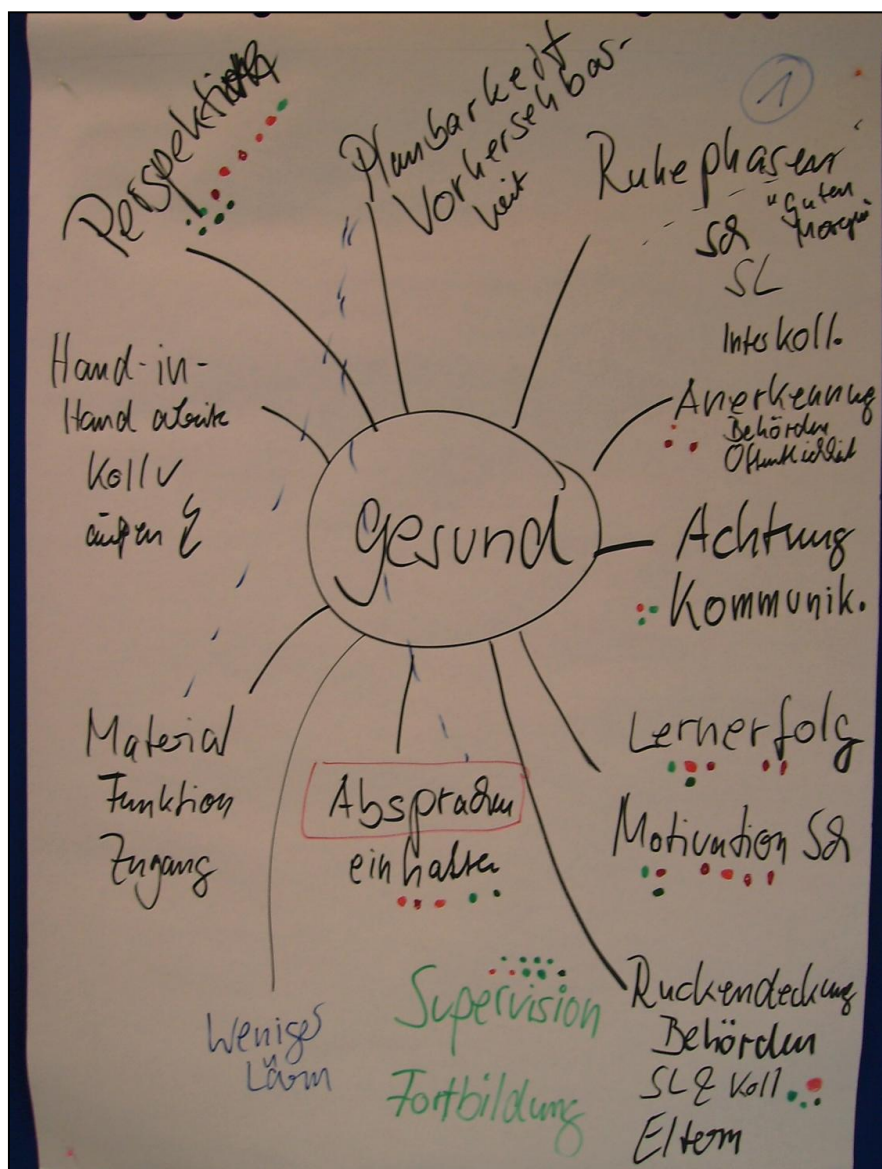 1
Perspektiven
Planbarkeit
Vorhersehbar-
keit
Ruhephasen
"Guten
Morgen"
SL
Interkoll.
Hand-in-
Hand arbeite
Koll
außen
Anerkennung
Behörden
Öffentlichkeit
gesund
Achtung
Kommunik.
Material
Funktion
Zugang
Absprachen
einhalten
Lernerfolg
Motivation
Weniger
Lärm
Supervision
Fortbildung
Rückendeckung
Behörden
SL & Koll
Eltern